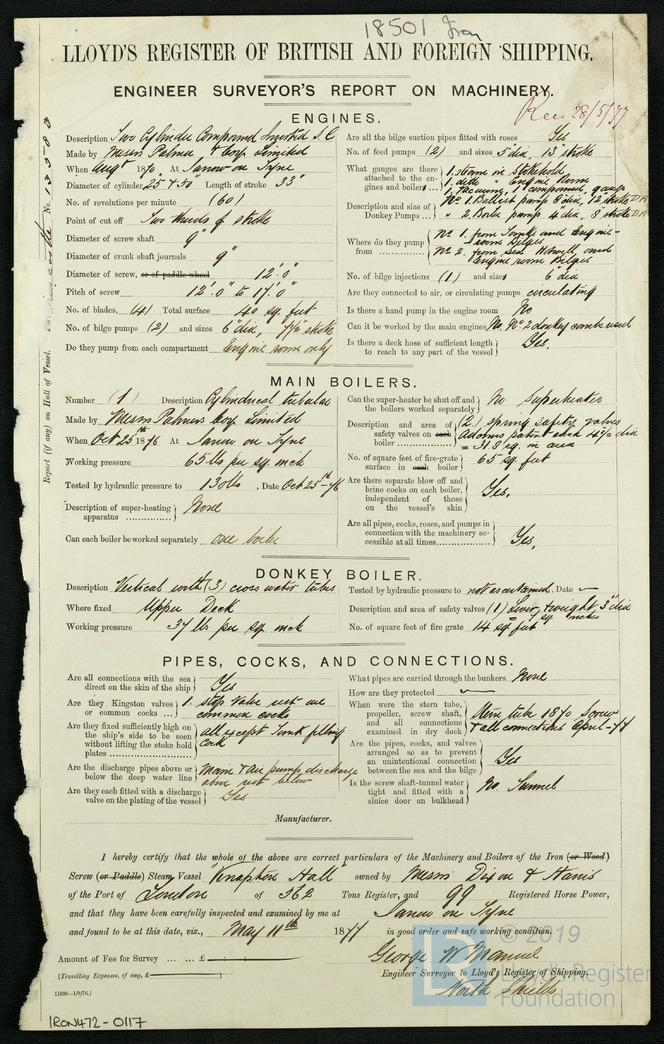 18501 Iron
LLOYD'S REGISTER OF BRITISH AND FOREIGN SHIPPING.
ENGINEER SURVEYOR'S REPORT ON MACHINERY.
Rec 28/5/77
ENGINES.
Description Two Cylinder Compound Inverted S.C
Made by Messrs Palmer & Coy Limited
When Augt 1870 At Jarrow on Tyne
Diameter of cylinder 25" & 50 Length of stroke 33"
No. of revolutions per minute (60)
Point of cut off Two thirds of stroke
Diameter of screw shaft 9"
Diameter of crank shaft journals 9"
Diameter of screw, or of paddle wheel 12'.0"
Pitch of screw 12'.0" to 17'.0"
No. of blades, (4) Total surface 40 sq. feet
No. of bilge pumps (2) and sizes 6" dia, 7½" stroke
Do they pump from each compartment Engine room only
Are all the bilge suction pipes fitted with roses Yes
No. of feed pumps (2) and sizes 5" dia, 13" stroke
What gauges are there attached to the engines and boilers 1 steam in stokehold
1 ditto " Engine Room
1 vacuum, 1 compound, gauge
Description and size of Donkey Pumps ... No 1. Ballast pump 8" dia, 12" stroke D.A
" 2. Boiler pump 4" dia, 8" stroke D.A
Where do they pump from No. 1. from Tanks and Engine-room Bilges
No. 2. from sea Hotwell and Engine room Bilges
No. of bilge injections (1) and sizes 6" dia
Are they connected to air, or circulating pumps circulating
Is there a hand pump in the engine room No
Can it be worked by the main engines No. No 2 donkey can be used
Is there a deck hose of sufficient length to reach to any part of the vessel Yes.
MAIN BOILERS.
Number (1) Description Cylindrical tubular
Made by Messrs Palmers Coy Limited
When Oct 25th 1876 At Jarrow on Tyne
Working pressure 65 lbs per sq. inch
Tested by hydraulic pressure to 130 lbs, Date Oct 25th -76
Description of super-heating apparatus None
Can each boiler be worked separately one boiler
Can the super-heater be shut off and the boilers worked separately No Superheater
Description and area of safety valves on each boiler (2) spring safety valves
Adams patent each 4½ dia
= 31.8 sq. in area
No. of square feet of fire-grate surface in each boiler 65 sq. feet
Are there separate blow off and brine cocks on each boiler, independent of those on the vessel's skin Yes.
Are all pipes, cocks, roses, and pumps in connection with the machinery accessible at all times Yes.
DONKEY BOILER.
Description Vertical with (3) cross water tubes
Where fixed Upper Deck
Working pressure 37 lbs per sq. inch
Tested by hydraulic pressure to not ascertained, Date
Description and area of safety valves (1) Lever & weight 3" dia
No. of square feet of fire grate 14 sq. feet
PIPES, COCKS, AND CONNECTIONS.
Are all connections with the sea direct on the skin of the ship Yes
Are they Kingston valves or common cocks 1 stop valve rest are common cocks
Are they fixed sufficiently high on the ship's side to be seen without lifting the stoke hold plates all except Tank filling cock
Are the discharge pipes above or below the deep water line main & air pump discharge above rest below
Are they each fitted with a discharge valve on the plating of the vessel Yes
What pipes are carried through the bunkers None
How are they protected
When were the stern tube, propeller, screw shaft, and all connections examined in dry dock Stern tube 1870 Screw & all connections April -77
Are the pipes, cocks, and valves arranged so as to prevent an unintentional connection between the sea and the bilge Yes
Is the screw shaft-tunnel water tight and fitted with a sluice door on bulkhead No Tunnel
Manufacturer.
I hereby certify that the whole of the above are correct particulars of the Machinery and Boilers of the Iron (or Wood)
Screw (or Paddle) Steam Vessel "Knapton Hall" owned by Messrs Dixon & Harris
of the Port of London of 362 Tons Register, and 99 Registered Horse Power,
and that they have been carefully inspected and examined by me at Jarrow on Tyne
and found to be at this date, viz., May 11th 1877 in good order and safe working condition.
George W Manuel
Amount of Fee for Survey ... ... £
Engineer Surveyor to Lloyd's Register of Shipping.
(Travelling Expenses, if any, £ )
North Shields
[1000—1/9/76.]
IRON472-0117
Report (if any) on Hull of Vessel. No. 13383
© 2019
Lloyd's Register
Foundation